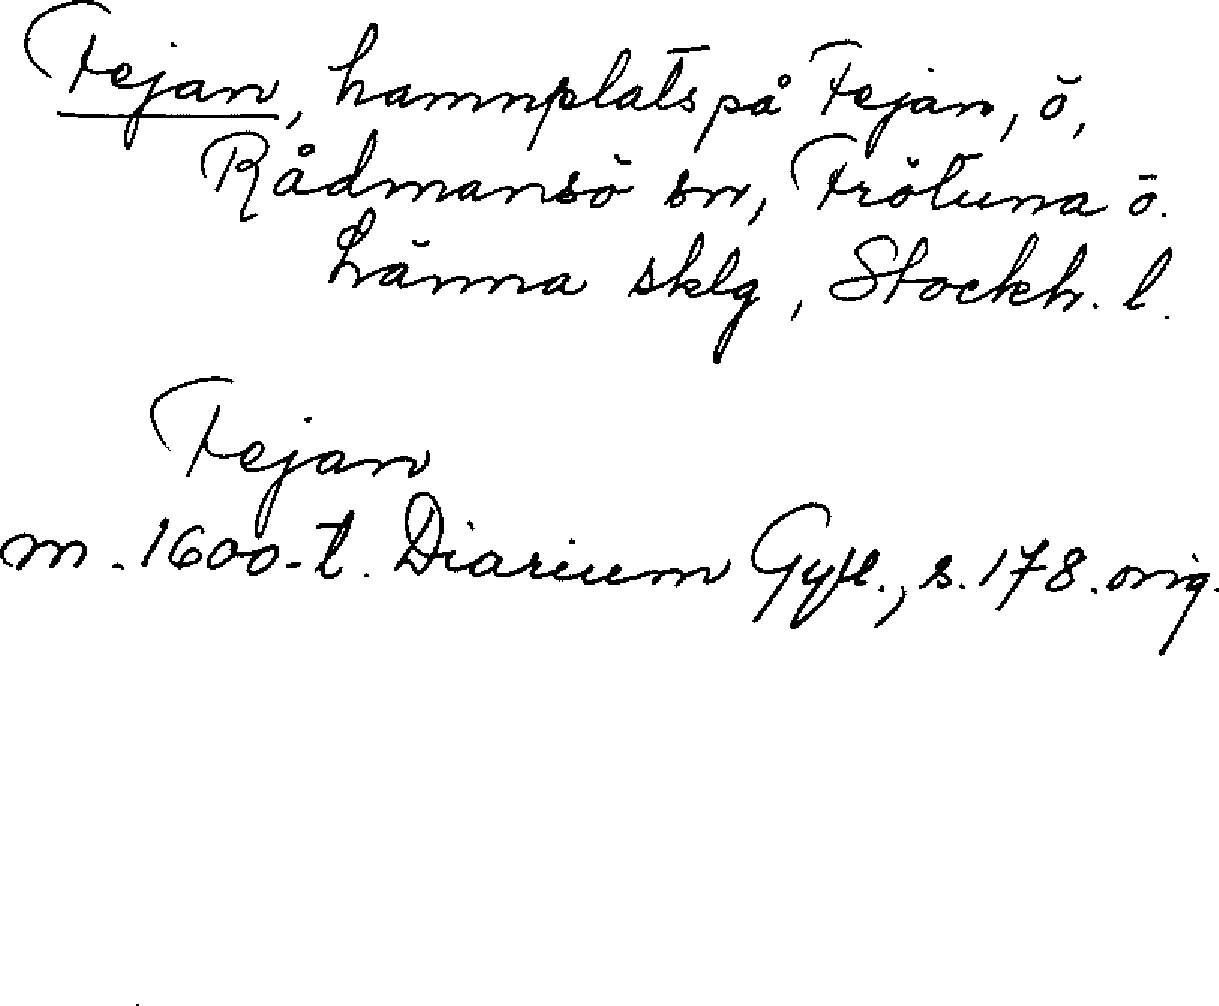 Fejan, hamnplats på Fejan, ö,
Rådmansö sn, Frötuna o.
Länna sklg, Stockh. l.
Fejan
m. 1600-t. Diarium Gyll., s. 178. orig.